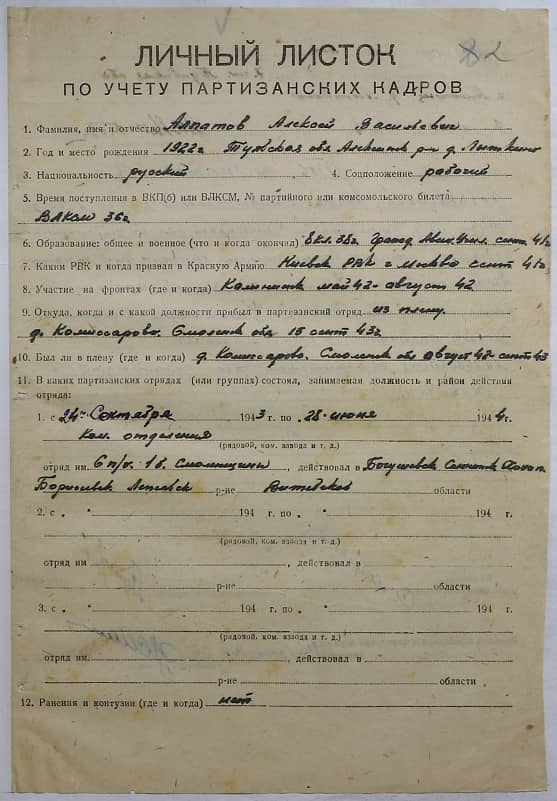 2
ЛИЧНЫЙ ЛИСТОК
ПО УЧЕТУ ПАРТИЗАНСКИХ КАДРОВ
1. Фамилия, имя и отчество Алпатов Алексей Васильевич
2. Год и место рождения 1922г Тульская обл
3. Национальность русский 4. Соцположение рабочий
5. Время поступления в ВКП(б) или ВЛКСМ, № партийного или комсомольского билета
ВЛКСМ 36г
6. Образование: общее и военное (что и когда окончил) 8 кл. 38г. сент. 41г
7. Каким РВК и когда призван в Красную Армию Киевск РВК г Москва сент 41г
8. Участие на фронтах (где и когда) Калининск май 42-август 42
9. Откуда, когда и с какой должности прибыл в партизанский отряд из плену.
д. Комиссарово. Смоленск обл 15 сент 43г
10. Был ли в плену (где и когда) д. Комиссарово. Смоленск обл август 42-сент 43
11. В каких партизанских отрядах (или группах) состоял, занимаемая должность и район действия
отряда:
1. с „24" Сентября 1943 г. по „28" июня 1944 г.
Ком. отделения
(рядовой, ком. взвода и т. д.)
отряд им. 6 п/к. 1 б. Смоленщины, действовал в Богушевск Сенненск Холоп.
Борисовск Лепельск р-не Витебской области
2. с „ " 194 г. по „ " 194 г.
(рядовой, ком. взвода и т. д.)
отряд им , действовал в
р-не области
3. с „ " 194 г. по „ " 194 г.
(рядовой, ком. взвода и т. д.)
отряд им. , действовал в
р-не области
12. Ранения и контузии (где и когда) нет